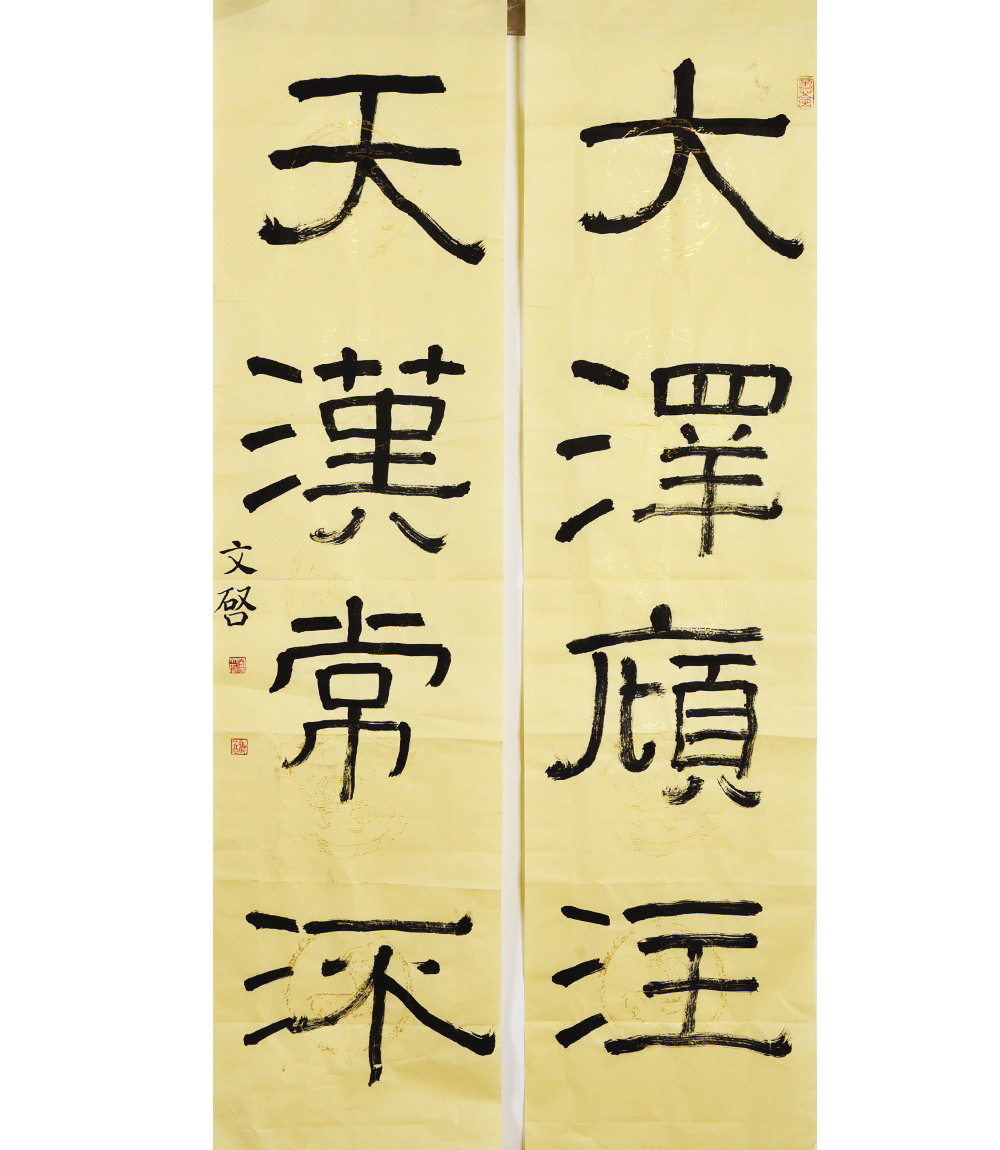 大澤廎注
天漢常
文啓